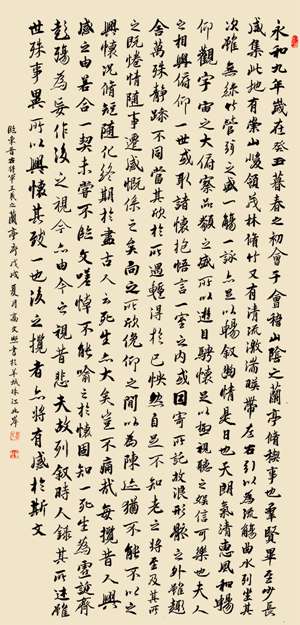 永和九年歲在癸丑暮春之初會于會稽山陰之蘭亭脩禊事也羣賢畢至少長
咸集此地有崇山峻領茂林脩竹又有清流激湍暎帶左右引以為流觴曲水列坐其
次雖無絲竹管弦之盛一觴一詠亦足以暢叙幽情是日也天朗氣清惠風和暢
仰觀宇宙之大俯察品類之盛所以遊目騁懷足以極視聽之娛信可樂也夫人
之相與俯仰一世或取諸懷抱悟言一室之內或因寄所託放浪形骸之外雖趣
舍萬殊靜躁不同當其欣於所遇輕得於己怏然自足不知老之將至及其所
之既惓情隨事遷感慨係之矣向之所欣俛仰之間以為陳迹猶不能不以之
興懷況脩短隨化終期於盡古人云死生亦大矣豈不痛哉每攬昔人興
感之由若合一契未嘗不臨文嗟悼不能喻之於懷固知一死生為虛誕齊
彭殤為妄作後之視今亦由今之視昔悲夫故列叙時人錄其所述雖
世殊事異所以興懷其致一也後之攬者亦將有感於斯文
臨東晉右將軍王羲之蘭亭序戊戌夏月高文書於羊城珠江北岸